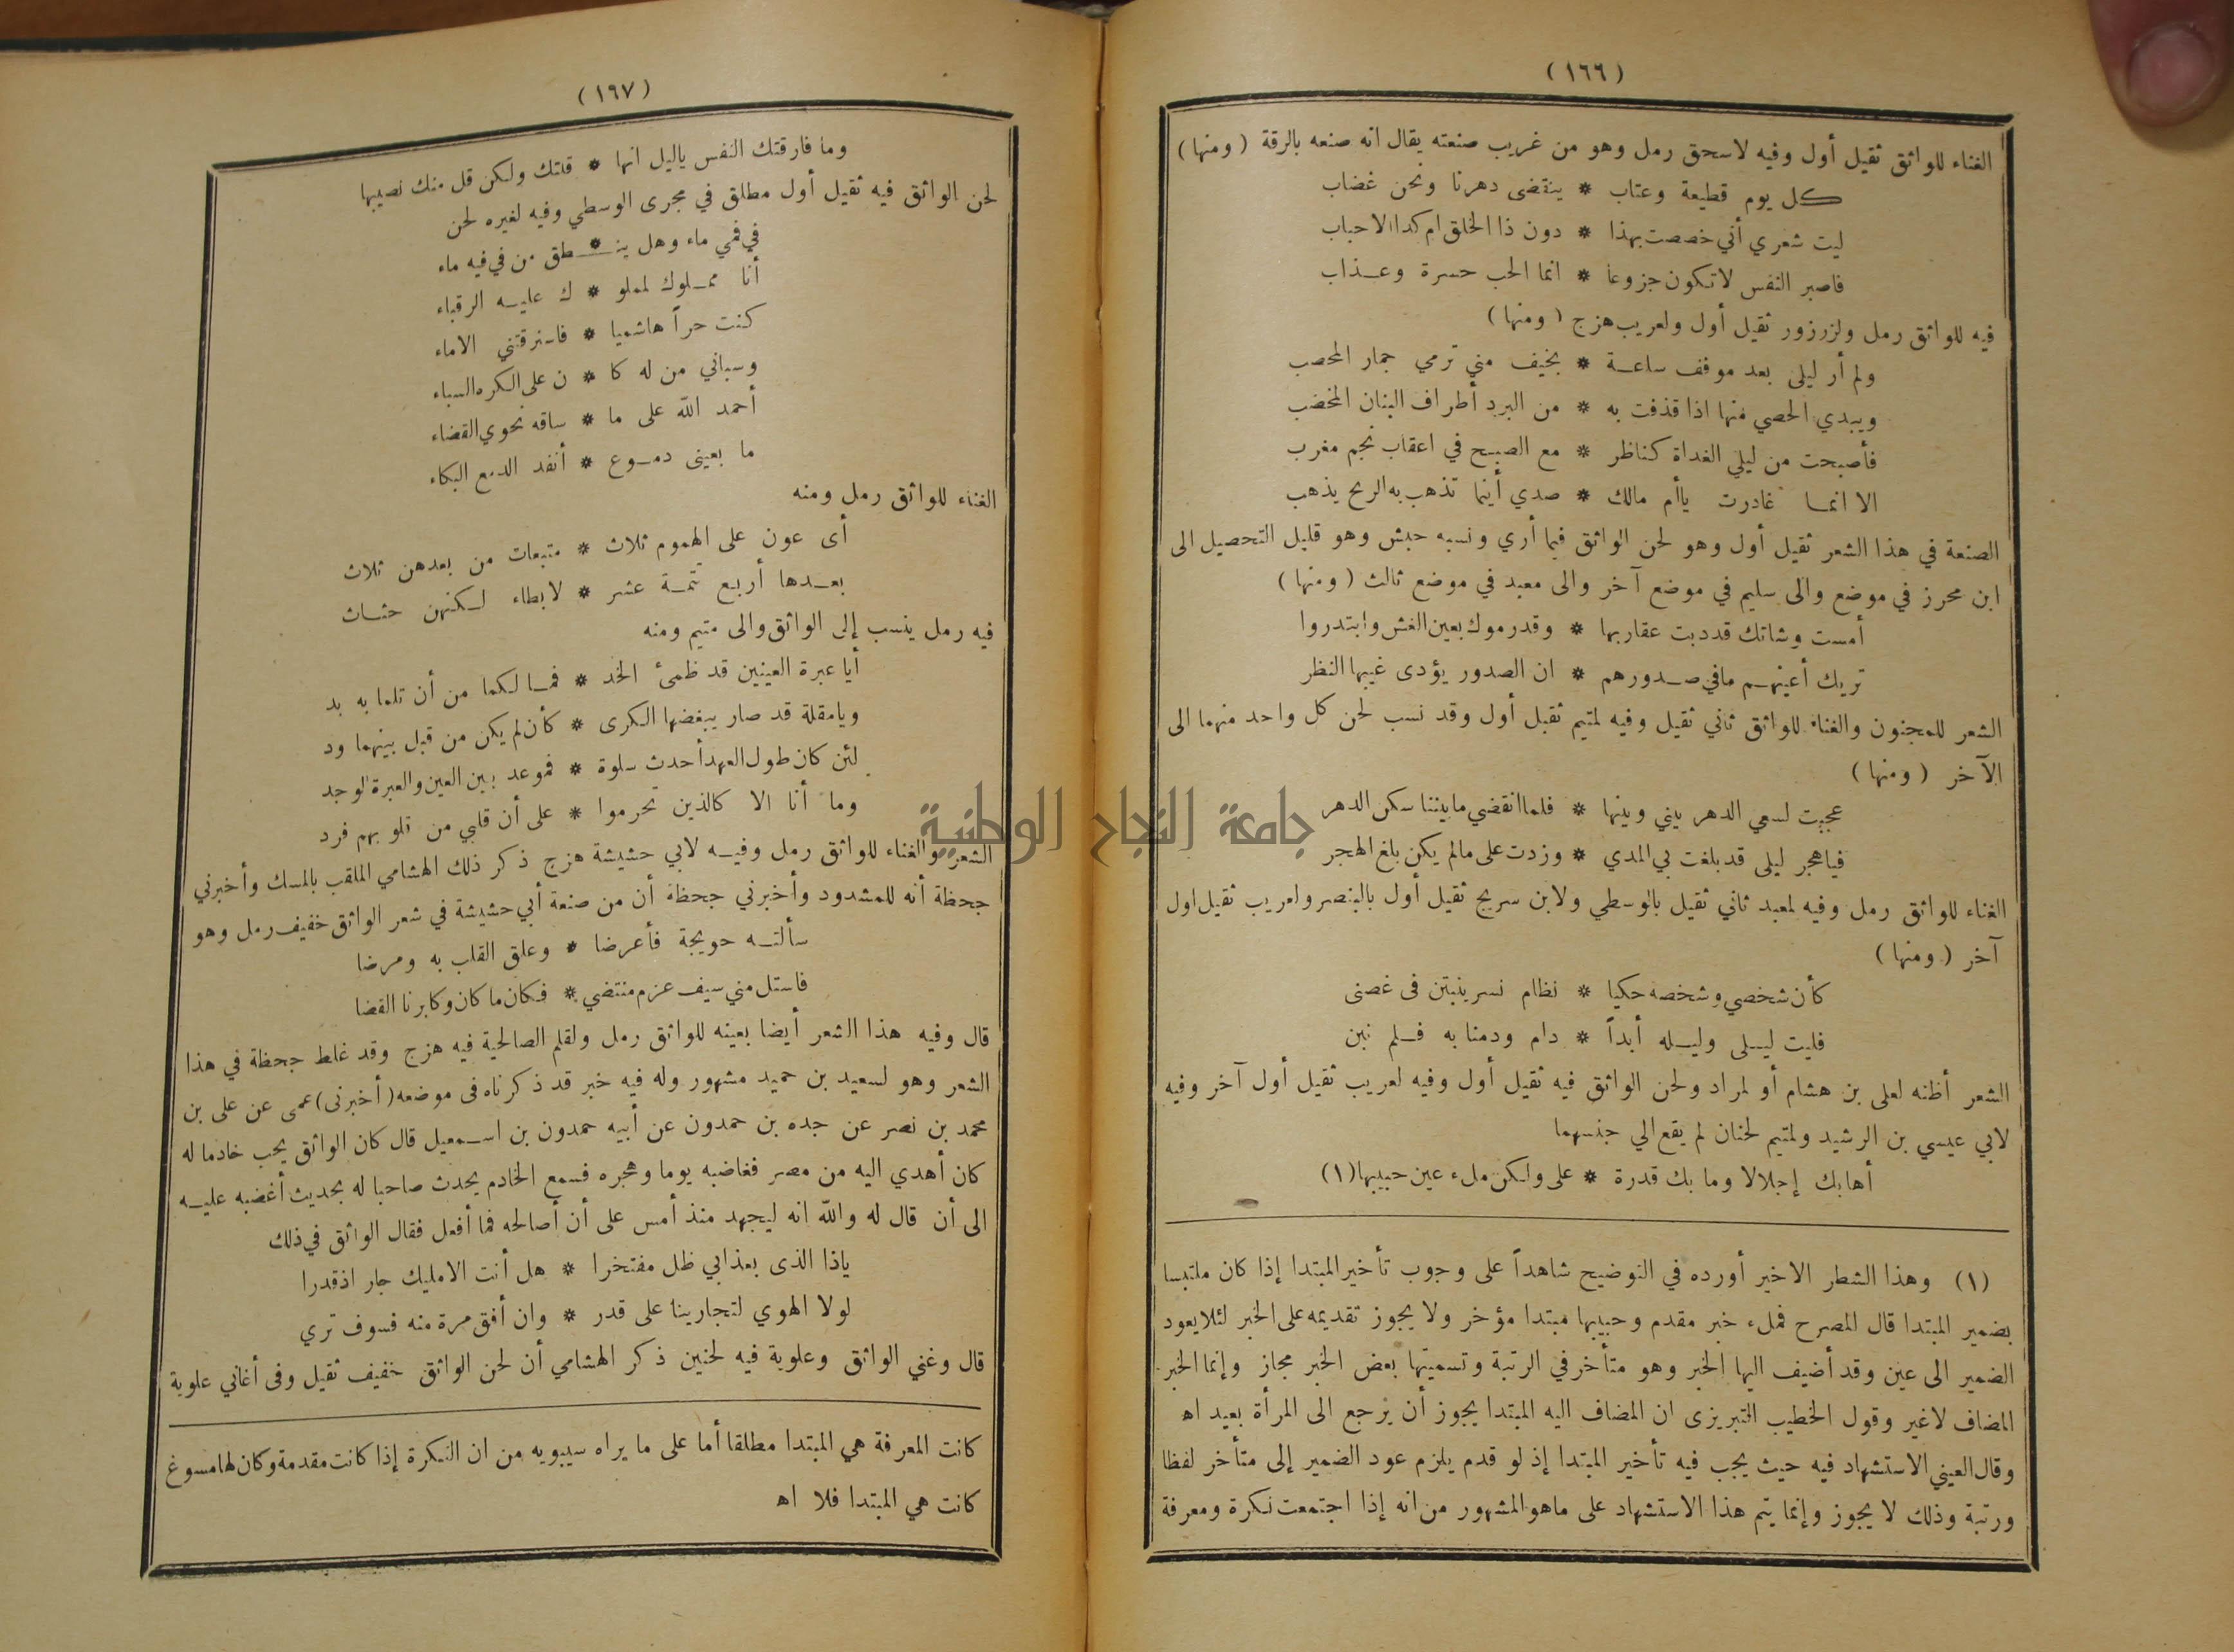 (١٦٦)
الغناء للواثق ثقيل أول وفيه لاسحق رمل وهو من غريب صنعته يقال انه صنعه بالرقة (ومنها)
كل يوم قطيعة وعتاب * ينقضى دهرنا ونحن غضاب
ليت شعري أني خصصت بهذا * دون ذا الخلق ام كذا الاحباب
فاصبر النفس لا تكون جزوعا * انما الحب حسرة وعذاب
فيه للواثق رمل ولزرزور ثقيل أول ولعريب هزج (ومنها)
ولم أر ليلى بعد موقف ساعة * بخيف مني ترمي جمار المحصب
ويبدي الحصي منها اذا قذفت به * من البرد أطراف البنان المخضب
فأصبحت من ليلي الغداة كناظر * مع الصبح في اعقاب نجم مغرب
الا انما غادرت ياأم مالك * صدي أينما تذهب به الريح يذهب
الصنعة في هذا الشعر ثقيل أول وهو لحن الواثق فيما أري ونسبه حبش وهو قليل التحصيل الى
ابن محرز في موضع والى سليم في موضع آخر والى معبد في موضع ثالث (ومنها)
أمست وشاتك قد دبت عقاربها * وقد رموك بعين الغش وابتدروا
تريك أعينهم مافي صدورهم * ان الصدور يؤدى غيبها النظر
الشعر للمجنون والغناء للواثق ثاني ثقيل وفيه لمتيم ثقيل أول وقد نسب لحن كل واحد منهما الى
الآخر (ومنها)
عجبت لسعي الدهر بيني وبينها * فلما انقضي مابيننا سكن الدهر
فياهجر ليلى قد بلغت بي المدي * وزدت على مالم يكن بلغ الهجر
الغناء للواثق رمل وفيه لمعبد ثاني ثقيل بالوسطي ولابن سريج ثقيل أول بالبنصر ولعريب ثقيل اول
آخر (ومنها)
كأن شخصي وشخصه حكيا * نظام نسرينتين فى غصنى
فليت ليلى وليله أبداً * دام ودمنا به فلم نبن
الشعر أظنه لعلى بن هشام أو لمراد ولحن الواثق فيه ثقيل أول وفيه لعريب ثقيل أول آخر وفيه
لابي عيسي بن الرشيد ولمتيم لحنان لم يقع الي جنسهما
أهابك إجلالا وما بك قدرة * على ولكن ملء عين حبيبها (١)
(١) وهذا الشطر الاخير أورده في التوضيح شاهداً على وجوب تأخير المبتدا إذا كان ملتبسا
بضمير المبتدا قال المصرح فملء خبر مقدم وحبيبها مبتدا مؤخر ولا يجوز تقديمه على الخبر لئلا يعود
الضمير الى عين وقد أضيف اليها الخبر وهو متأخر في الرتبة وتسميتها بعض الخبر مجاز وإنما الخبر
المضاف لا غير وقول الخطيب التبريزى ان المضاف اليه المبتدا يجوز أن يرجع الى المرأة بعيد اه
وقال العيني الاستشهاد فيه حيث يجب فيه تأخير المبتدا إذ لو قدم يلزم عود الضمير إلى متأخر لفظا
ورتبة وذلك لا يجوز وإنما يتم هذا الاستشهاد على ماهو المشهور من انه إذا اجتمعت نكرة ومعرفة
(١٩٧)
وما فارقتك النفس ياليل انها * قلتك ولكن قل منك نصيبها
لحن الواثق فيه ثقيل أول مطلق في مجرى الوسطي وفيه لغيره لحن
في فمي ماء وهل ين * طق من في فيه ماء
أنا مملوك لمملو * ك عليه الرقباء
كنت حراً هاشميا * فاسترقتني الاماء
وسباني من له كا * ن على الكره السباء
أحمد الله على ما * ساقه نحوي القضاء
ما بعينى دموع * أنفد الدمع البكاء
الغناء للواثق رمل ومنه
أى عون على الهموم ثلاث * متبعات من بعدهن ثلاث
بعدها أربع تتمة عشر * لا بطاء لكنهن حثاث
فيه رمل ينسب إلى الواثق والى متيم ومنه
أيا عبرة العينين قد ظمئ الخد * فما لكما من أن تلما به بد
ويا مقلة قد صار يبغضها الكرى * كأن لم يكن من قبل بينهما ود
لئن كان طول العهد أحدث سلوة * فموعد بين العين والعبرة الوجد
وما أنا الا كالذين تخرموا * على أن قلبي من قلوبهم فرد
الشعر والغناء للواثق رمل وفيه لابي حشيشة هزج ذكر ذلك الهشامي الملقب بالمسك وأخبرني
جحظة أنه للمشدود وأخبرني جحظة أن من صنعة أبي حشيشة في شعر الواثق خفيف رمل وهو
سألته حويجة فأعرضا * وعلق القلب به ومرضا
فاستل مني سيف عزم منتضي * فكان ما كان وكابرنا القضا
قال وفيه هذا الشعر أيضا بعينه للواثق رمل ولقلم الصالحية فيه هزج وقد غلط جحظة في هذا
الشعر وهو لسعيد بن حميد مشهور وله فيه خبر قد ذكرناه فى موضعه (أخبرنى) عمى عن على بن
محمد بن نصر عن جده بن حمدون عن أبيه حمدون بن اسمعيل قال كان الواثق يحب خادما له
كان أهدي اليه من مصر فغاضبه يوما وهجره فسمع الخادم يحدث صاحبا له بحديث أغضبه عليه
الى أن قال له والله انه ليجهد منذ أمس على أن أصالحه فما أفعل فقال الواثق في ذلك
ياذا الذى بعذابي ظل مفتخرا * هل أنت الا مليك جار اذ قدرا
لولا الهوي لتجارينا على قدر * وان أفق مرة منه فسوف تري
قال وغني الواثق وعلوية فيه لحنين ذكر الهشامي أن لحن الواثق خفيف ثقيل وفى أغاني علوية
كانت المعرفة هي المبتدا مطلقا أما على ما يراه سيبويه من ان النكرة إذا كانت مقدمة وكان لها مسوغ
كانت هي المبتدا فلا اه
جامعة النجاح الوطنية